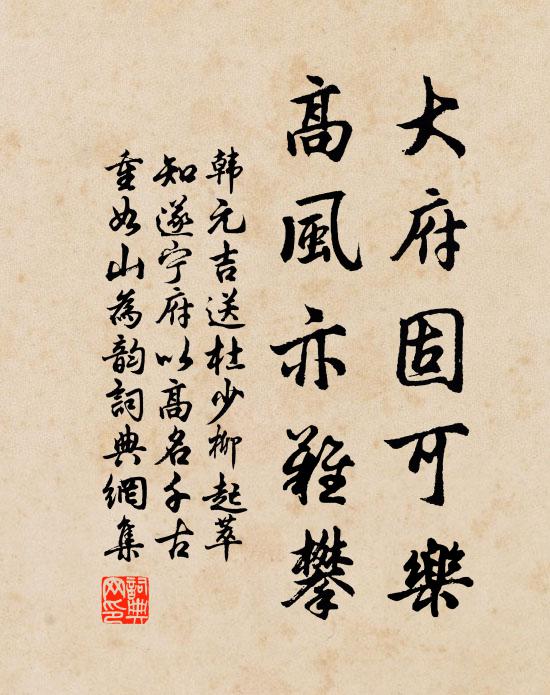 大府固可樂
高風亦難攀
韩元吉送杜少柳起莘
知遂宁府以高名千古
重如山為韵詞典網集
詞典網印